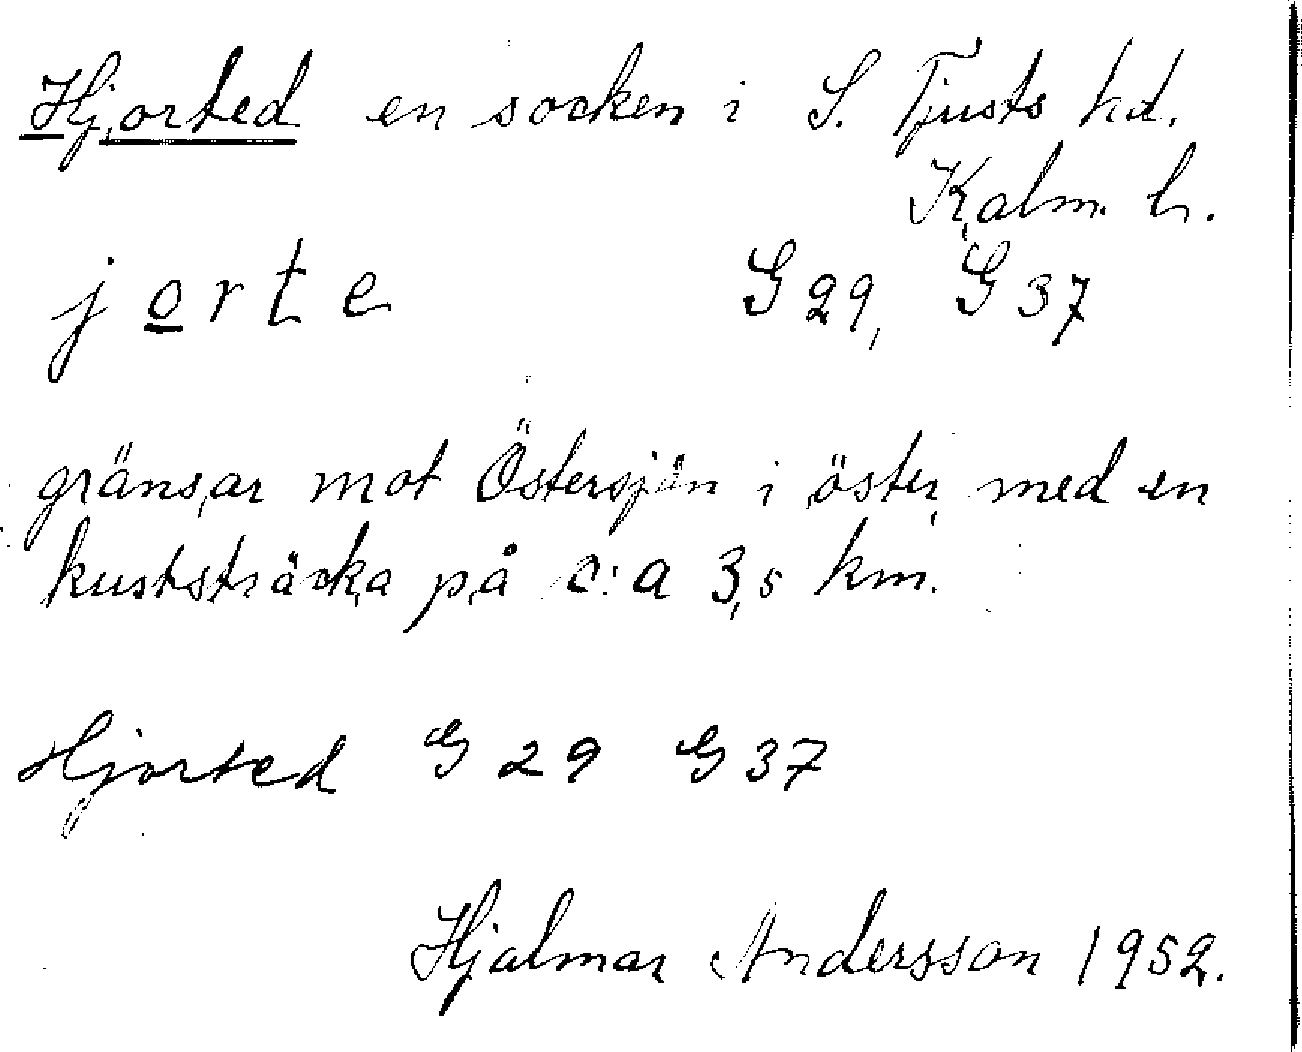 Hjorted en socken i S. Tjusts hd.
Kalm. l.
jorte G 29, G 37
gränsar mot Östersjön i öster, med en
kuststräcka på c:a 3,5 km.
Hjorted G 29 G 37
Hjalmar Andersson 1952.